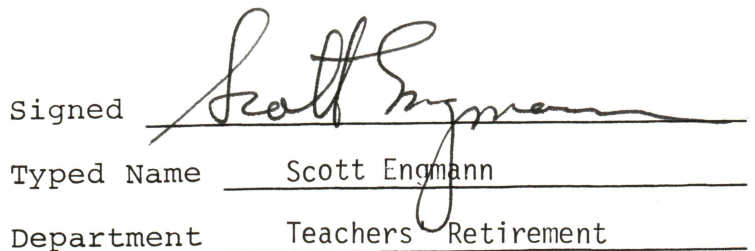 Signed Scott Engmann
Typed Name Scott Engmann
Department Teachers' Retirement